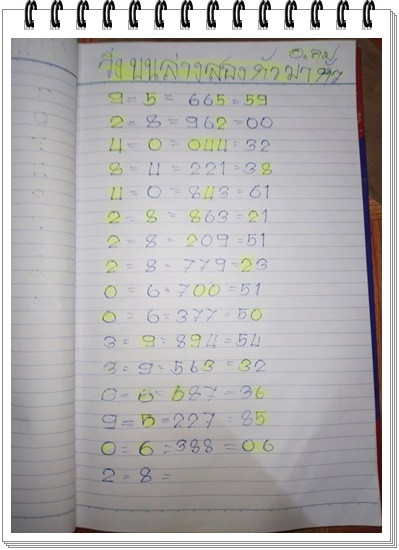 วิ่งบนล่างสองตัวมาตัว
9 = 5 = 665 = 59
2 = 8 = 962 = 00
4 = 0 = 044 = 32
8 = 4 = 221 = 38
4 = 0 = 843 = 61
2 = 8 = 863 = 21
2 = 8 = 209 = 51
2 = 8 = 779 = 23
0 = 6 = 700 = 51
0 = 6 = 377 = 50
3 = 9 = 894 = 54
3 = 9 = 563 = 32
0 = 6 = 687 = 36
9 = 5 = 227 = 85
0 = 6 = 388 = 06
2 = 8 =